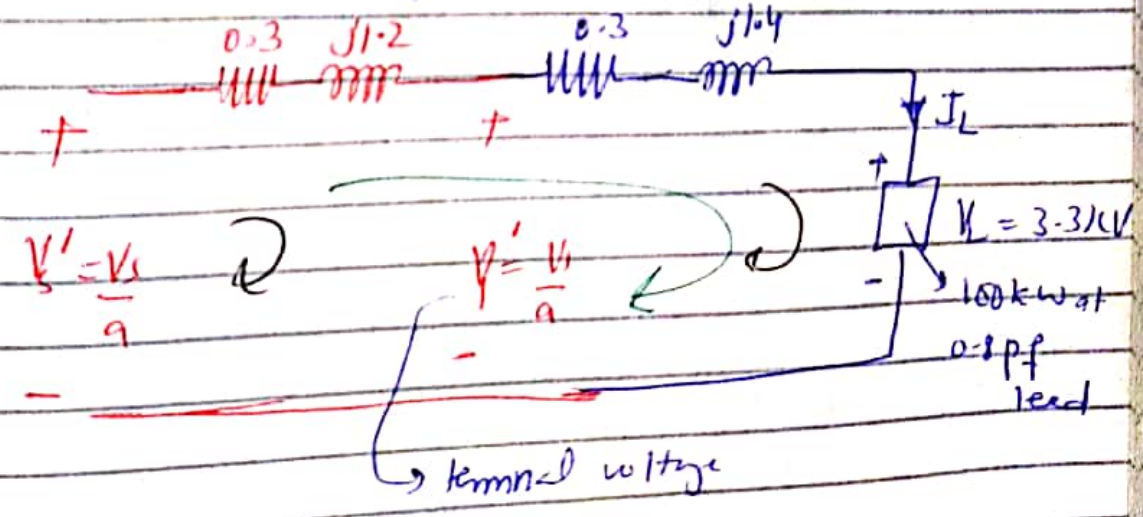 0.3 j1.2 0.3 j1.4
+ + I_L
+
V_s' = V_s/a V' = V_1/a V_L = 3.3kV
-
100kw at
0.8 pf
lead
- -
terminal voltage